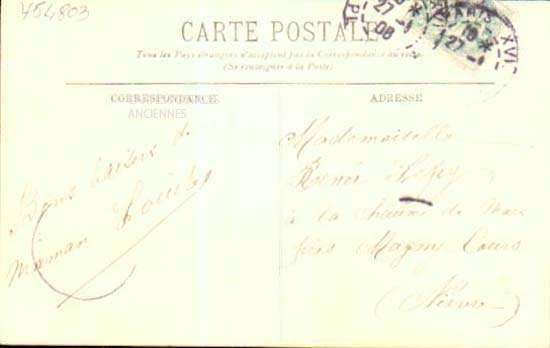 454803
CARTE POSTALE
Tous les Pays étrangers n'acceptent pas la Correspondance au recto.
(Se renseigner à la Poste)
CORRESPONDANCE
ANCIENNES
Bons baisers de
maman
ADRESSE
Mademoiselle
à la chaume de
près Magny Cours
(Nièvre)
PARIS XVI
27-1
08